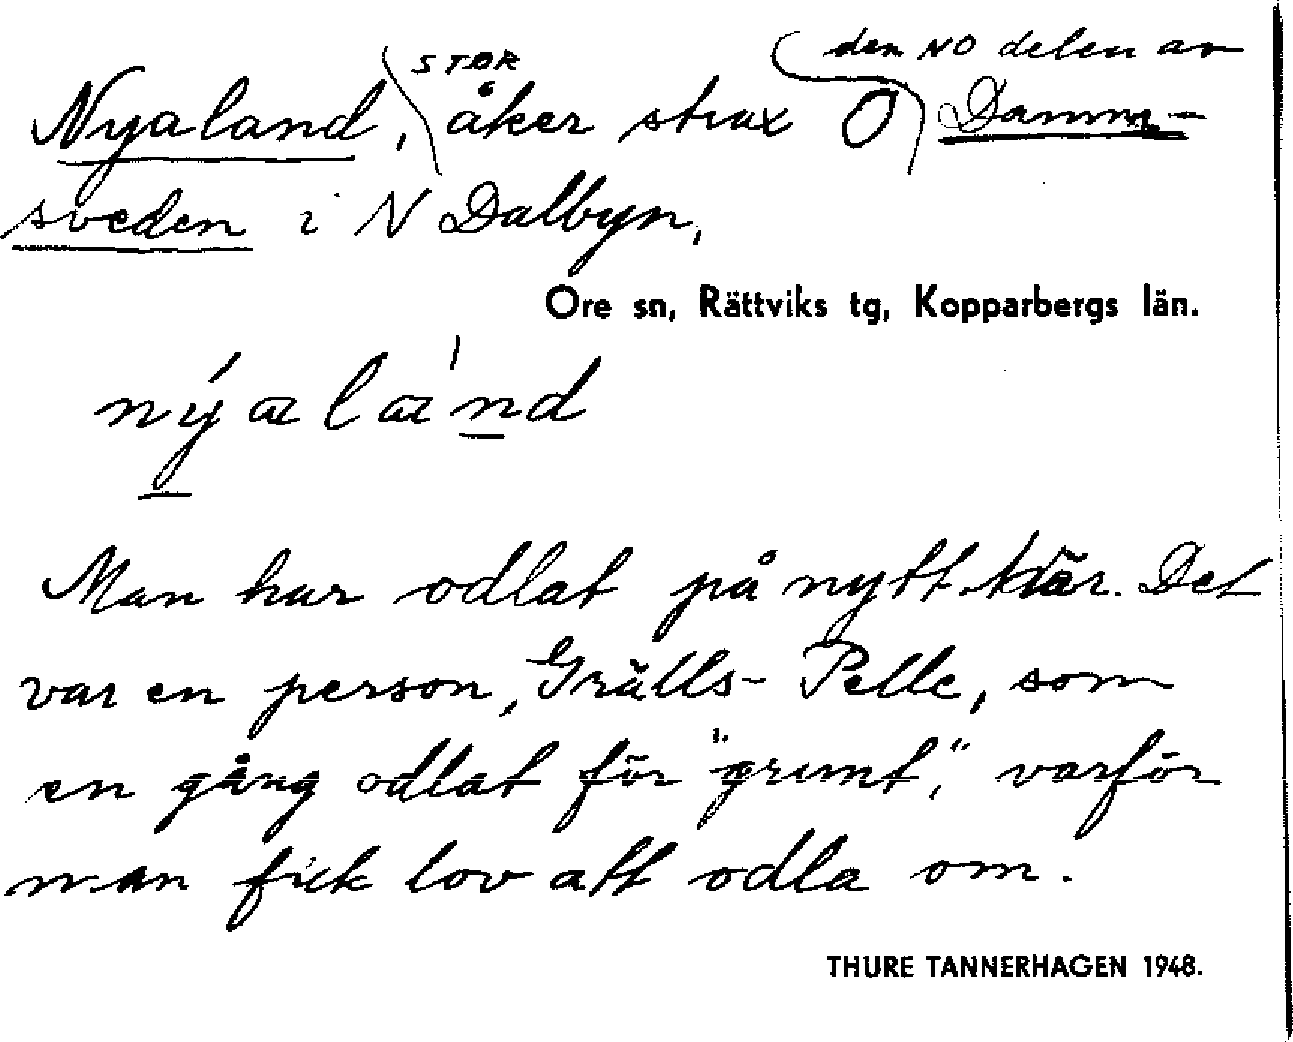 Nyaland, STOR åker strax O den NO delen av Damm-
sveden i N Dalbyn,
Ore sn, Rättviks tg, Kopparbergs län.
nýaland
Man har odlat på nytt här. Det
var en person, Grälls-Pelle, som
en gång odlat för "grunt", varför
man fick lov att odla om.
THURE TANNERHAGEN 1948.